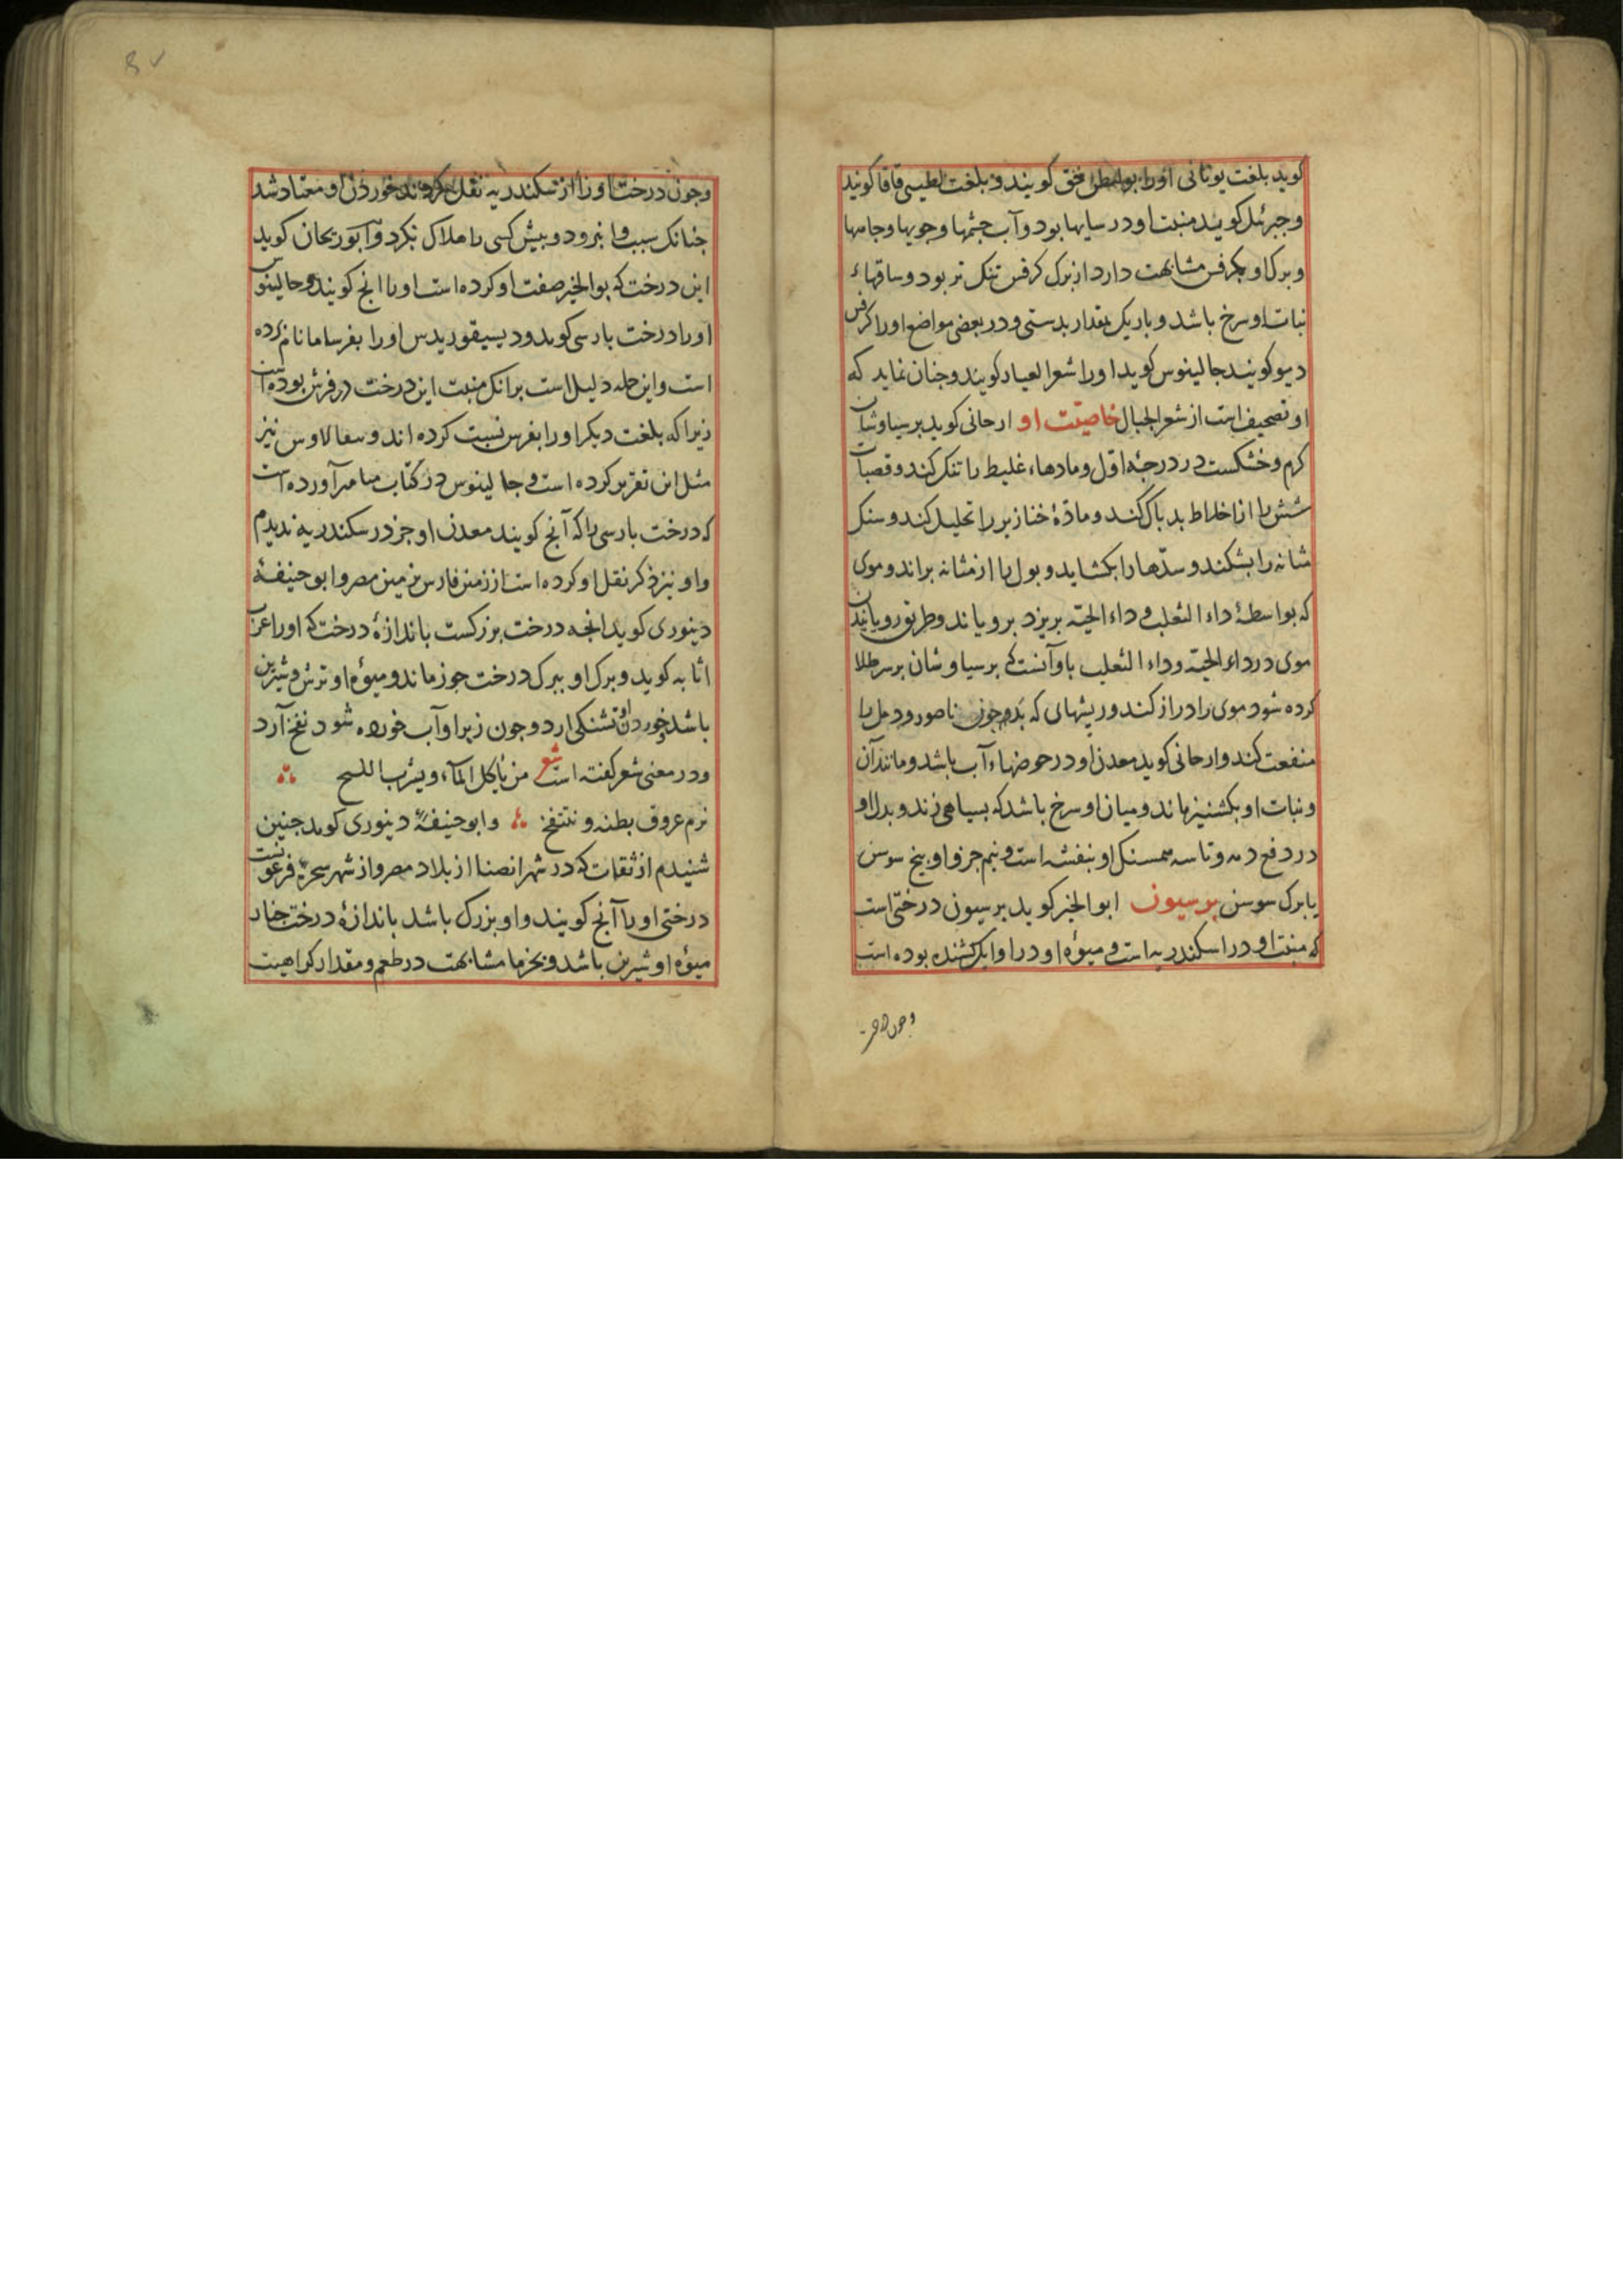 کوید بلغت یونانی اورا کویند و بلغت لطیسی قاقا کویند
و جبرئل کوید منبت او در سایها بود و آب جشمها و جویها و جامها
و برک او بکرفس مشابهت دارد از برک کرفس تنک تر بود و ساقهاء
نبات او سرخ باشد و باریک بمقدار بدستی و در بعضی مواضع اورا کرفس
دیو کویند جالینوس کوید اورا شعر العیار کویند و جنان نماید که
او تصحیف است از شعر الجبال خاصیّت او ارجانی کوید برسیاوشان
کرم و خشکست در درجهٔ اوّل و مادهاء غلیظ را تنک کند و قصبات
شش را از اخلاط بد باک کند و مادّهٔ خنازیر را تحلیل کند و سنک
مثانه را بشکند و سدّها را بکشاید و بول را از مثانه براند و موی
که بواسطهٔ داء الثعلب و داء الحیّه بریزد برویاند و طریق رویانیدن
موی در داء الحیّه و داء الثعلب باو آنست که برسیاوشان بر سر طلا
کرده شود موی را دراز کند و ریشهای که بد بود جون ناصور و دمل را
منفعت کند و ارجانی کوید معدن او در حوضهاء آب باشد و مانند آن
و نبات او بکشنیز ماند و میان او سرخ باشد که بسیاهی زند و بدل او
در دفع دمه و تاسه همسنک او بنفشه است و نیم جزو او بیخ سوسن
یا برک سوسن برسیون ابو الخیر کوید برسیون درختی است
که منبت او در اسکندریه است و میوهٔ او در اوایل کشنده بوده است
و جون درخت
وجون درخت اورا از اسکندریه نقل کرده‌اند خوردن او معتاد شد
جنانک سبب وا نبرود و بیش کسی را هلاک نکرد و ابو ریحان کوید
این درخت که بوالخیر صفت او کرده است اورا انج کویند و جالینوس
اورا درخت بارسی کوید و دیسیقوریدس اورا بفرساما نام کرده
است و این جمله دلیل است بر انک منبت این درخت در فرس بوده است
زیرا که بلغت دیکر اورا بفرس نسبت کرده اند و سعالاوس نیز
مثل این تقریر کرده است و جالینوس در کتاب میامر آورده است
که درخت بارسی را که آنج کویند معدن او جز در سکندریه ندیدم
و او نیز ذکر نقل او کرده است از زمین فارس بزمین مصر و ابو حنیفهٔ
دینوری کوید انجه درخت بزرکست باندازهٔ درخت که اورا عرب
اثابه کوید و برک او ببرک درخت جوز ماند و میوهٔ او ترش و شیرین
باشد خوردن او تشنکی ارد و جون زبر او آب خورده شود نفخ آرد
و در معنی شعر کفته است شعر من یاکل المآء و یشرب اللبیح
ترم عروق بطنه و تنتفخ و ابو حنیفهٔ دینوری کوید جنین
شنیدم از ثقات که در شهر انصنا از بلاد مصر و از شهر سحرهٔ فرعونست
درختی اورا آنج کویند و او بزرک باشد باندازهٔ درخت جنار
میوهٔ او شیرین باشد و بخرما مشابهت در طعم و مقدار کراهیت